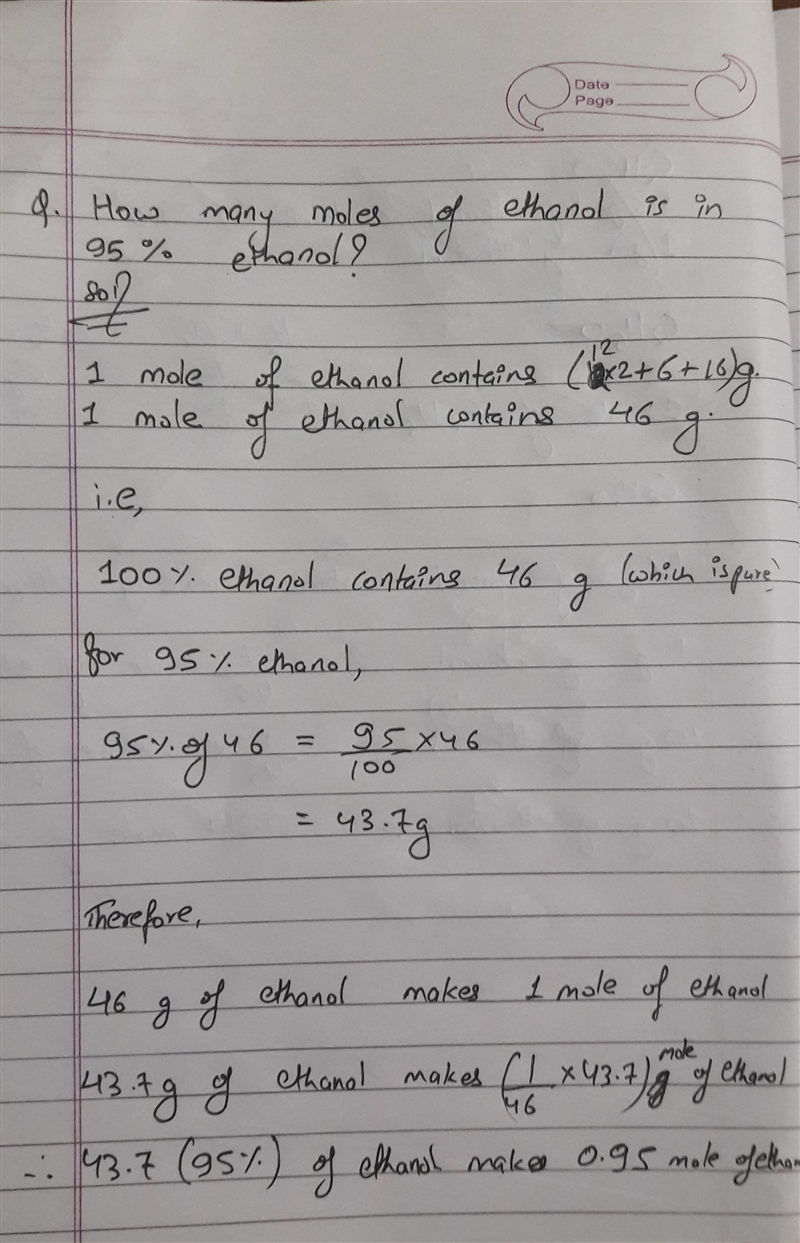 Date
Page
Q. How many moles of ethanol is in
95 % ethanol?
Sol?
1 mole of ethanol contains (12×2+6+16)g.
1 mole of ethanol contains 46 g.
i.e,
100 % ethanol contains 46 g (which is pure)
for 95 % ethanol,
95 % of 46 = 95/100 × 46
= 43.7g
Therefore,
46 g of ethanol makes 1 mole of ethanol
43.7g of ethanol makes (1/46 × 43.7) mole of ethanol
∴ 43.7 (95%) of ethanol makes 0.95 mole of ethan